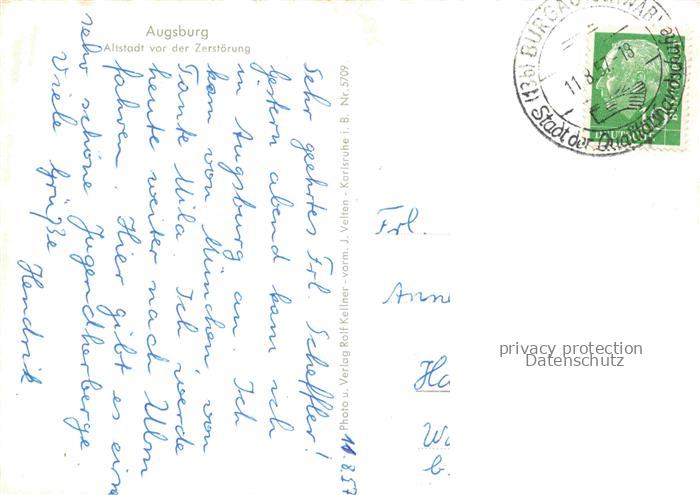 Augsburg
Altstadt vor der Zerstörung
11.8.57
Sehr geehrtes Frl. Scheffler!
Gestern abend kam ich
in Augsburg an. Ich
kam von München, von
Tante Mila. Ich werde
heute weiter nach Ulm
fahren. Hier gibt es eine
sehr schöne Jugendherberge.
Viele Grüße
Hendrik
Photo u. Verlag Rolf Kellner - vorm. J. Velten - Karlsruhe i. B. Nr. 5709
(13b) BURGAU (SCHWAB)
11.8.57-18
Stadt der
Frl.
Anne
Ha
Wa
b.
privacy protection
Datenschutz